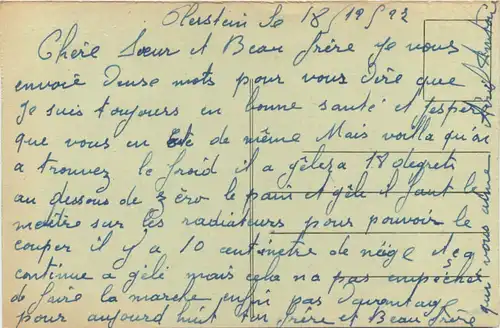 Olerstein le 18/19/92
Chère Sœur et Beau frère je vous
envoie deuse mots pour vous dire que
je suis toujours en bonne santé et j'espère
que vous en ete de même Mais voilla qu'on
a trouvez le froid il a gêleza 18 degrets
au dessous de zéro le pain et gêlé il faut le
mettre sur les radiateurs pour pouvoir le
couper il y a 10 centimètre de neige et ça
continue a gêlé mais cela na pas empêcher
de faire la marche enfin pas davantage
pour aujourd huit ton frère et Beau frère
qui vous aime